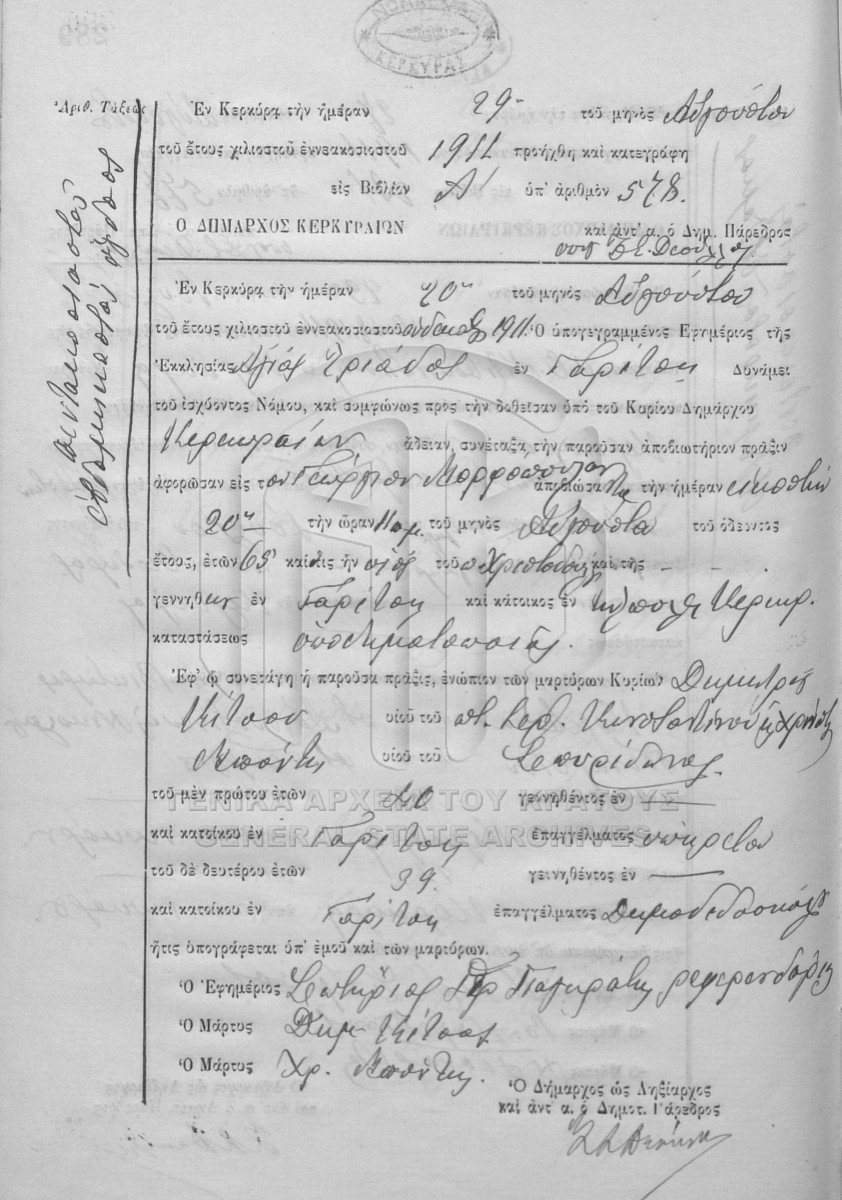 ΚΕΡΚΥΡΑΣ
Ἀριθ. Τάξεως
πεντακοσιοστὸν
ἑβδομηκοστὸν ὄγδοον
Ἐν Κερκύρᾳ τὴν ἡμέραν 29ην τοῦ μηνὸς Αὐγούστου
τοῦ ἔτους χιλιοστοῦ ἐννεακοσιοστοῦ 1911 προήχθη καὶ κατεγράφη
εἰς Βιβλίον Α' ὑπ' ἀριθμὸν 578.
Ο ΔΗΜΑΡΧΟΣ ΚΕΡΚΥΡΑΙΩΝ
καὶ ἀντ' α. ὁ Δημ. Πάρεδρος
Ἐν Κερκύρᾳ τὴν ἡμέραν 20ην τοῦ μηνὸς Αὐγούστου
τοῦ ἔτους χιλιοστοῦ ἐννεακοσιοστοῦ ἑνδεκάτου 1911 Ὁ ὑπογεγραμμένος Ἐφημέριος τῆς
Ἐκκλησίας Ἁγίας Τριάδος ἐν Γαρίτσῃ Δυνάμει
τοῦ ἰσχύοντος Νόμου, καὶ συμφώνως πρὸς τὴν δοθεῖσαν ὑπὸ τοῦ Κυρίου Δημάρχου
Κερκυραίων ἄδειαν, συνέταξα τὴν παροῦσαν ἀποβιωτήριον πρᾶξιν
ἀφορῶσαν εἰς τὸν Γεώργιον Μορφόπουλον ἀποβιώσαντα τὴν ἡμέραν εἰκοστὴν
20ην τὴν ὥραν 11 π.μ. τοῦ μηνὸς Αὐγούστου τοῦ ὁδεύοντος
ἔτους, ἐτῶν 65 καὶ εἰς ἦν υἱὸς τοῦ π. Χριστοδούλου καὶ τῆς – –
γεννηθεὶς ἐν Γαρίτσῃ καὶ κάτοικος ἐν τῇ πόλει Κερκύρ.
καταστάσεως ὑποδηματοποιός.
Ἐφ' ᾧ συνετάγη ἡ παροῦσα πρᾶξις, ἐνώπιον τῶν μαρτύρων Κυρίων Δημητρίου
Κίτσου υἱοῦ τοῦ Κωνσταντίνου καὶ Χρήστου
Μπόντη υἱοῦ τοῦ Σπυρίδωνος.
τοῦ μὲν πρώτου ἐτῶν 40 γεννηθέντος ἐν —
καὶ κατοίκου ἐν Γαρίτσῃ ἐπαγγέλματος ὑπηρέτου
τοῦ δὲ δευτέρου ἐτῶν 39. γεννηθέντος ἐν —
καὶ κατοίκου ἐν Γαρίτσῃ ἐπαγγέλματος Δημοδιδασκάλου
ἥτις ὑπογράφεται ὑπ' ἐμοῦ καὶ τῶν μαρτύρων.
Ὁ Ἐφημέριος Σωτήριος Παγκράτης ρεφερενδάριος
Ὁ Μάρτυς Δημ. Κίτσος
Ὁ Μάρτυς Χρ. Μπόντης.
Ὁ Δήμαρχος ὡς Ληξίαρχος
καὶ ἀντ' α. ὁ Δημοτ. Πάρεδρος
ΓΕΝΙΚΑ ΑΡΧΕΙΑ ΤΟΥ ΚΡΑΤΟΥΣ
GENERAL STATE ARCHIVES